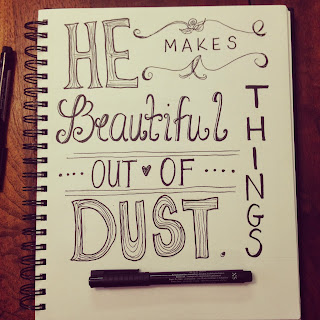 HE MAKES
Beautiful
THINGS
OUT OF
DUST.